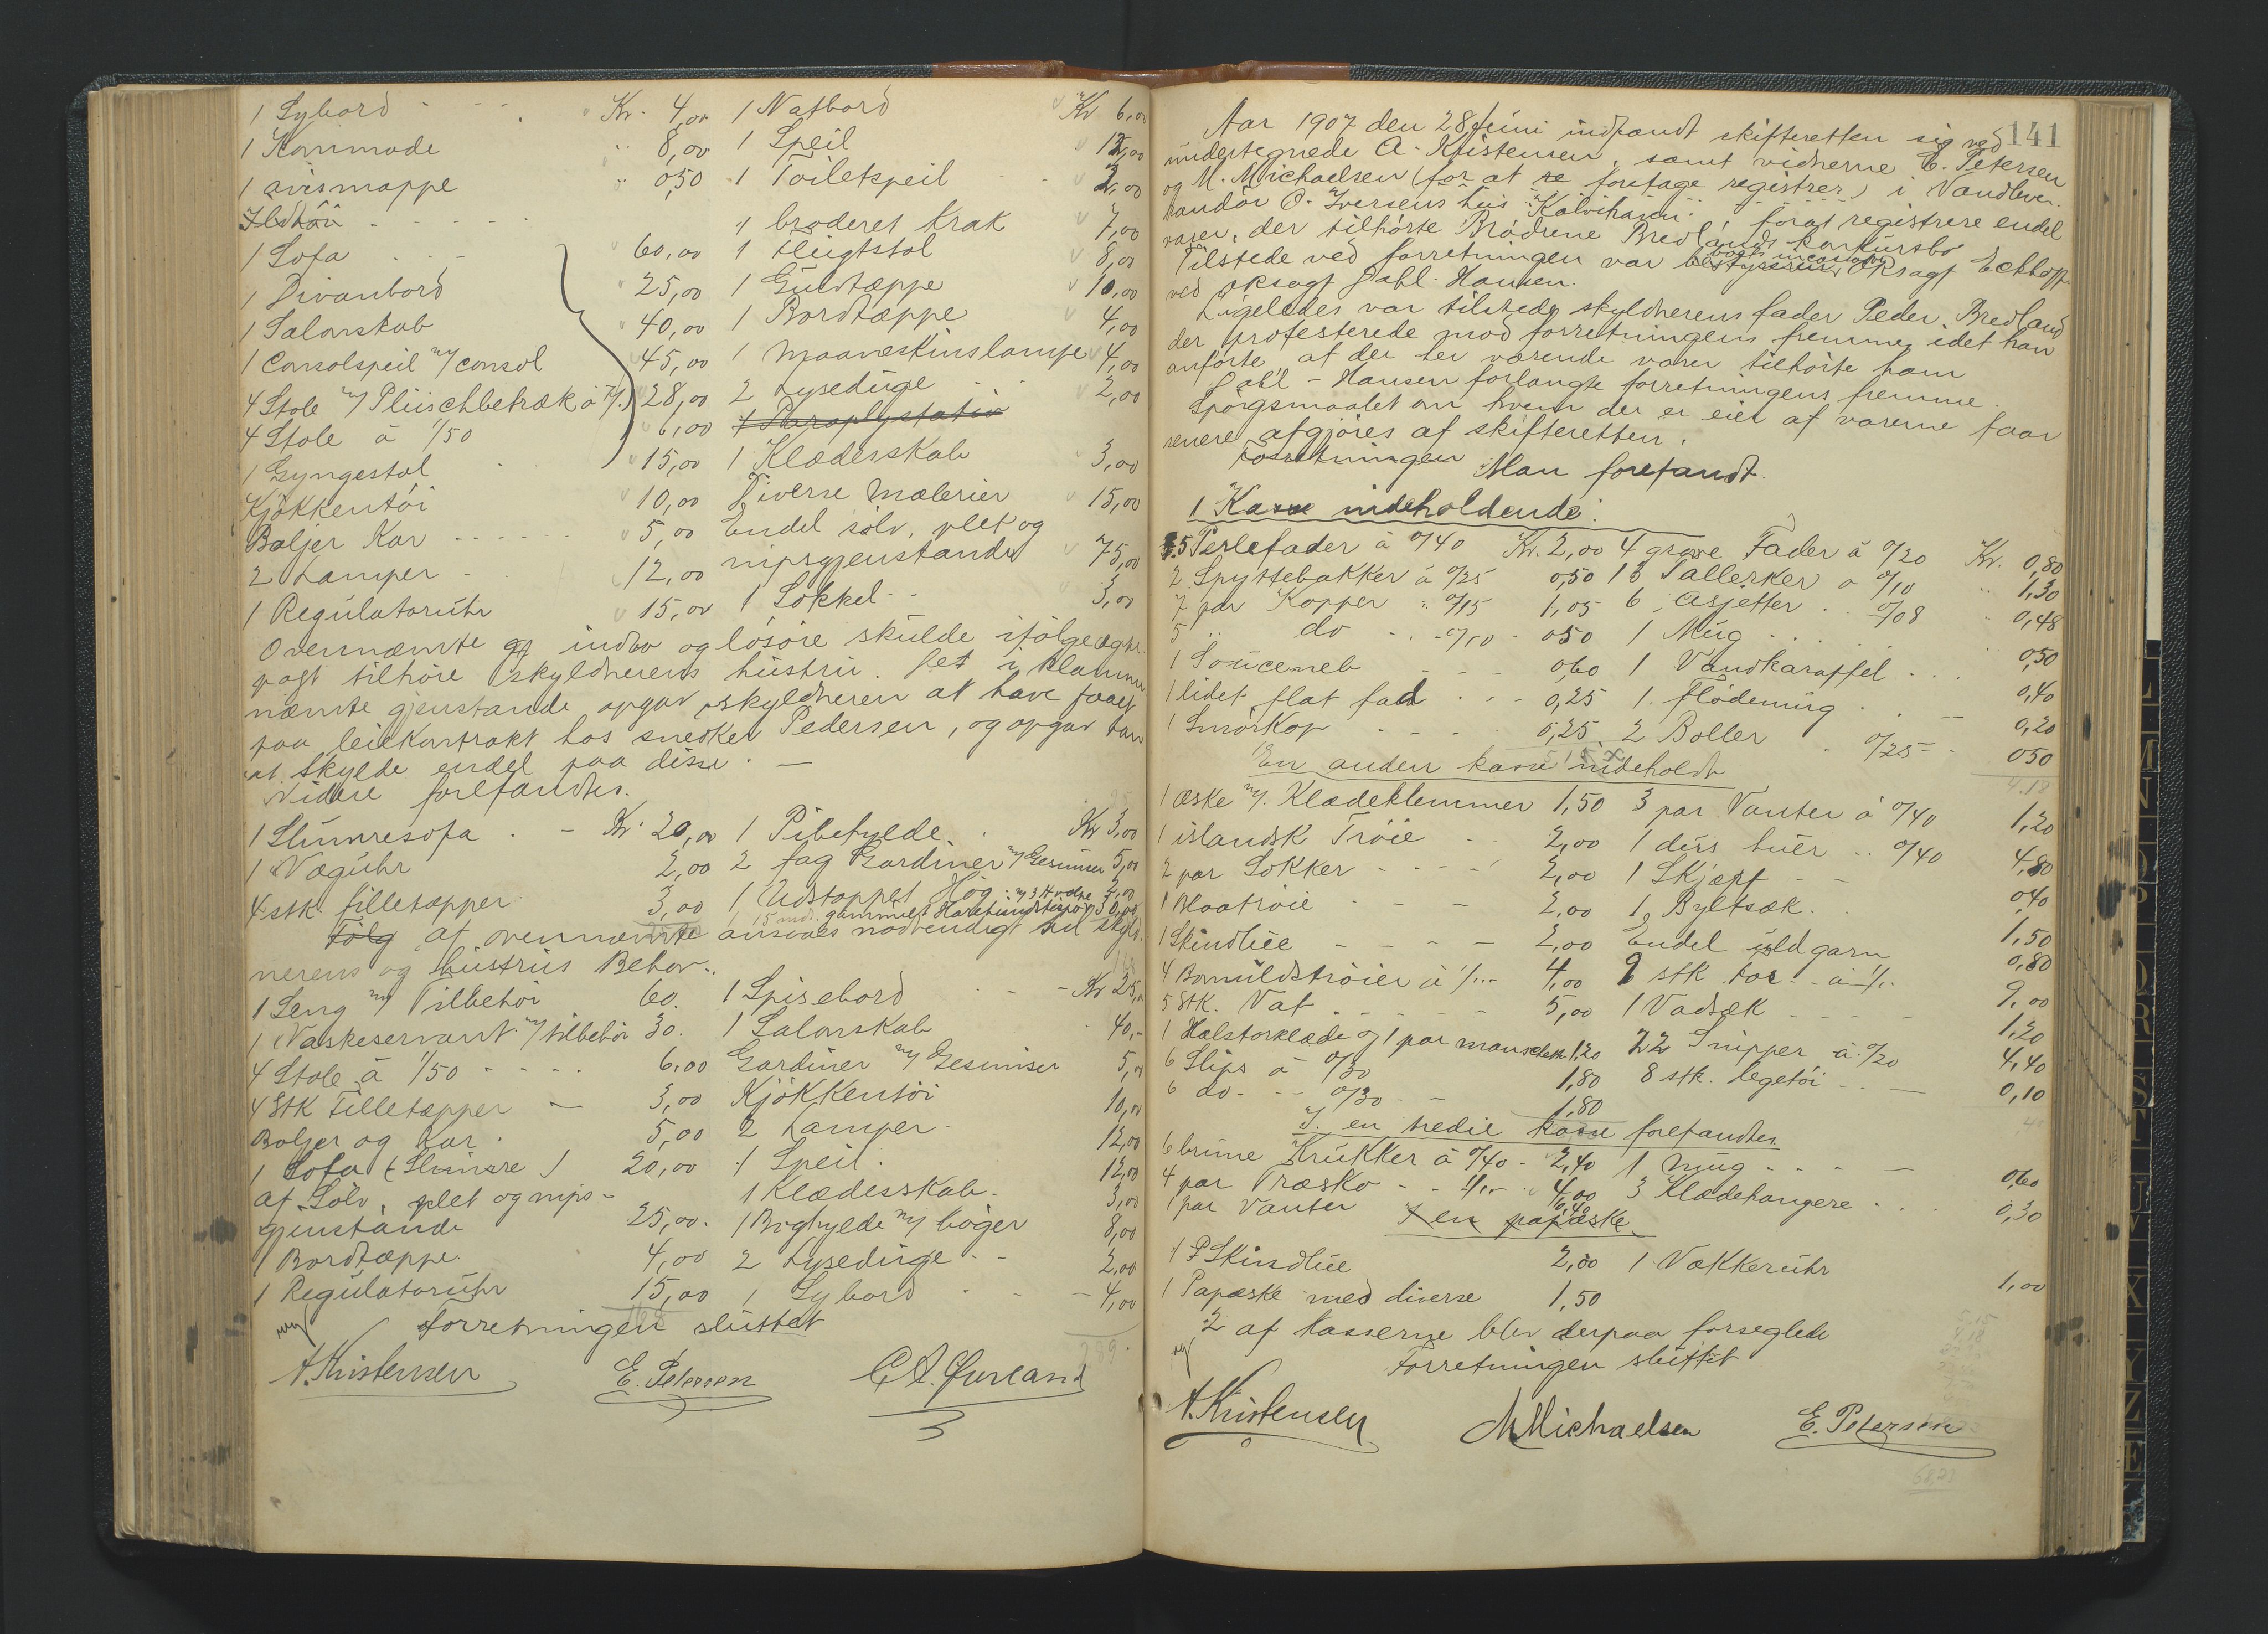 1 Sybord Kr. 4,00 1 Natbord Kr 6,00
1 Kommode 8,00 1 Speil 12,00
1 avismappe 0,50 1 Toiletspeil 2,00
1 broderet Krak 7,00
1 Sofa 60,00 1 Flugtstol 8,00
1 Divanbord 25,00 1 Gulvtæppe 10,00
1 Salonskab 40,00 1 Bordtæppe 4,00
1 Consolspeil m/ consol 45,00 1 Maaneskinslampe 4,00
4 Stole m/ Plüschbetræk à 7/. 28,00 2 Lyseduge 2,00
4 Stole à 1/50 6,00 1 Paraplystativ
1 Gyngestol 15,00 1 Klædesskab 3,00
Kjökkentöi 10,00 Diverse Malerier 15,00
Baljer Kar 5,00 Endel sölv, plet og
2 Lamper 12,00 nipsgjenstande 75,00
1 Regulatoruhr 15,00 1 Sokkel 3,00
Ovennæmte indbo og lösöre skulde ifölge ægte-
pagt tilhöre skyldnerens hustru. Det i klammer
nævnte gjenstande opgav skyldneren at have faaet
paa leiekontrakt hos snedker Pedersen, og opgav han
at skylde endel paa disse. —
Videre forefandtes.
1 Slumresofa Kr. 20,00 1 Pibehylde Kr 3,00
1 Væguhr 2,00 2 fag Gardiner m/ Gesimser 5,00
4 stk. filletæpper 3,00 1 Udstoppet Høg 2,00
af ovennævnte ansaaes nödvendigt til skyld-
nerens og hustrus Behov.
1 Seng m/ Tilbehör 60. 1 Spisebord Kr 25,00
1 Vaskeservant m/ tilbehör 30. 1 Salonskab 40,-
4 Stole à 1/50 6,00 Gardiner m/ Gesimser 5,00
4 Stk Filletæpper 3,00 Kjökkentöi 10,00
Baljer og Kar 5,00 2 Lamper 12,00
1 Sofa (Slumre) 20,00 1 Speil 12,00
af Sölv, plet og nips- 1 Klædesskab 3,00
gjenstande 25,00. 1 Boghylde m/ böger 8,00
1 Bordtæppe 4,00 2 Lyseduge 2,00
1 Regulatoruhr 15,00 1 Sybord 4,00
forretningen sluttet
A. Kristensen E. Petersen
141
Aar 1907 den 28 Juni indfandt skifteretten sig ved
undertegnede A. Kristensen, samt vidnerne E. Petersen
og M. Michaelsen (for at re foretage registrer) i Vandleve-
randör O. Iversens hus "Kalvihavn" forat registrere endel
varer, der tilhörte Brödrene Bredlands konkursbo
Tilstede ved forretningen var bestyreren, Oksagf Eckhoff
ved oksagf Dahl-Hansen.
Ligeledes var tilstede skyldnerens fader Peder Bredland
der protesterede mod forretningens fremme, idet han
anförte at de her værende varer tilhörte ham
Dahl-Hansen forlangte forretningens fremme.
Spörgsmaalet om hvem der er eier af varerne faar
senere afgjöres af skifteretten.
Forretningen Man forefandt.
1 Kasse indeholdende:
5 Perlefader à 0/40 Kr. 2,00 4 grove Fader à 0/20 Kr. 0,80
2 Spyttebakker à 0/25 0,50 13 Tallerker à 0/10 1,30
7 par Kopper 0/15 1,05 6 Asjetter 0/08 0,48
5 " do 0/10 0,50 1 Mug 0,50
1 Souceneb 0,60 1 Vandkaraffel 0,40
1 lidet flat fad 0,25 1 flödemug 0,20
1 Smörkop 0,25 2 Boller 0/25 0,50
En anden kasse indeholdt
1 æske m/. Klædeklemmer 1,50 3 par Vanter à 0/40 1,20
1 islandsk Tröie 2,00 1 dus huer 0/40 4,80
2 par Sokker 2,00 1 Skjært 0,40
1 Blaatröie 2,00 1 Byltsæk 1,50
1 Skindhue 2,00 Endel uldgarn 0,80
4 Bomuldströier à 1/.. 4,00 9 stk à 1/. 9,00
5 Stk. Vat 5,00 1 Vadsæk 1,20
1 Halstørklæde og 1 par manschett 1,20 22 Snipper à 0/20 4,40
6 Slips à 0/30 1,80 8 stk. legetöi 0,10
6 do. 0/30 1,80
I en tredie kasse forefandtes
6 brune Krukker à 0/40 2,40 1 Mug 0,60
4 par Træsko 1/.. 4,00 3 Klædehangere 0,30
1 par Vanter 0,40
I en papæske
1 Skindhue 2,00 1 Vækkeruhr 1,00
1 Papæske med diverse 1,50
2 af kasserne blev derpaa forseglede
Forretningen sluttet
A. Kristensen M Michaelsen E. Petersen